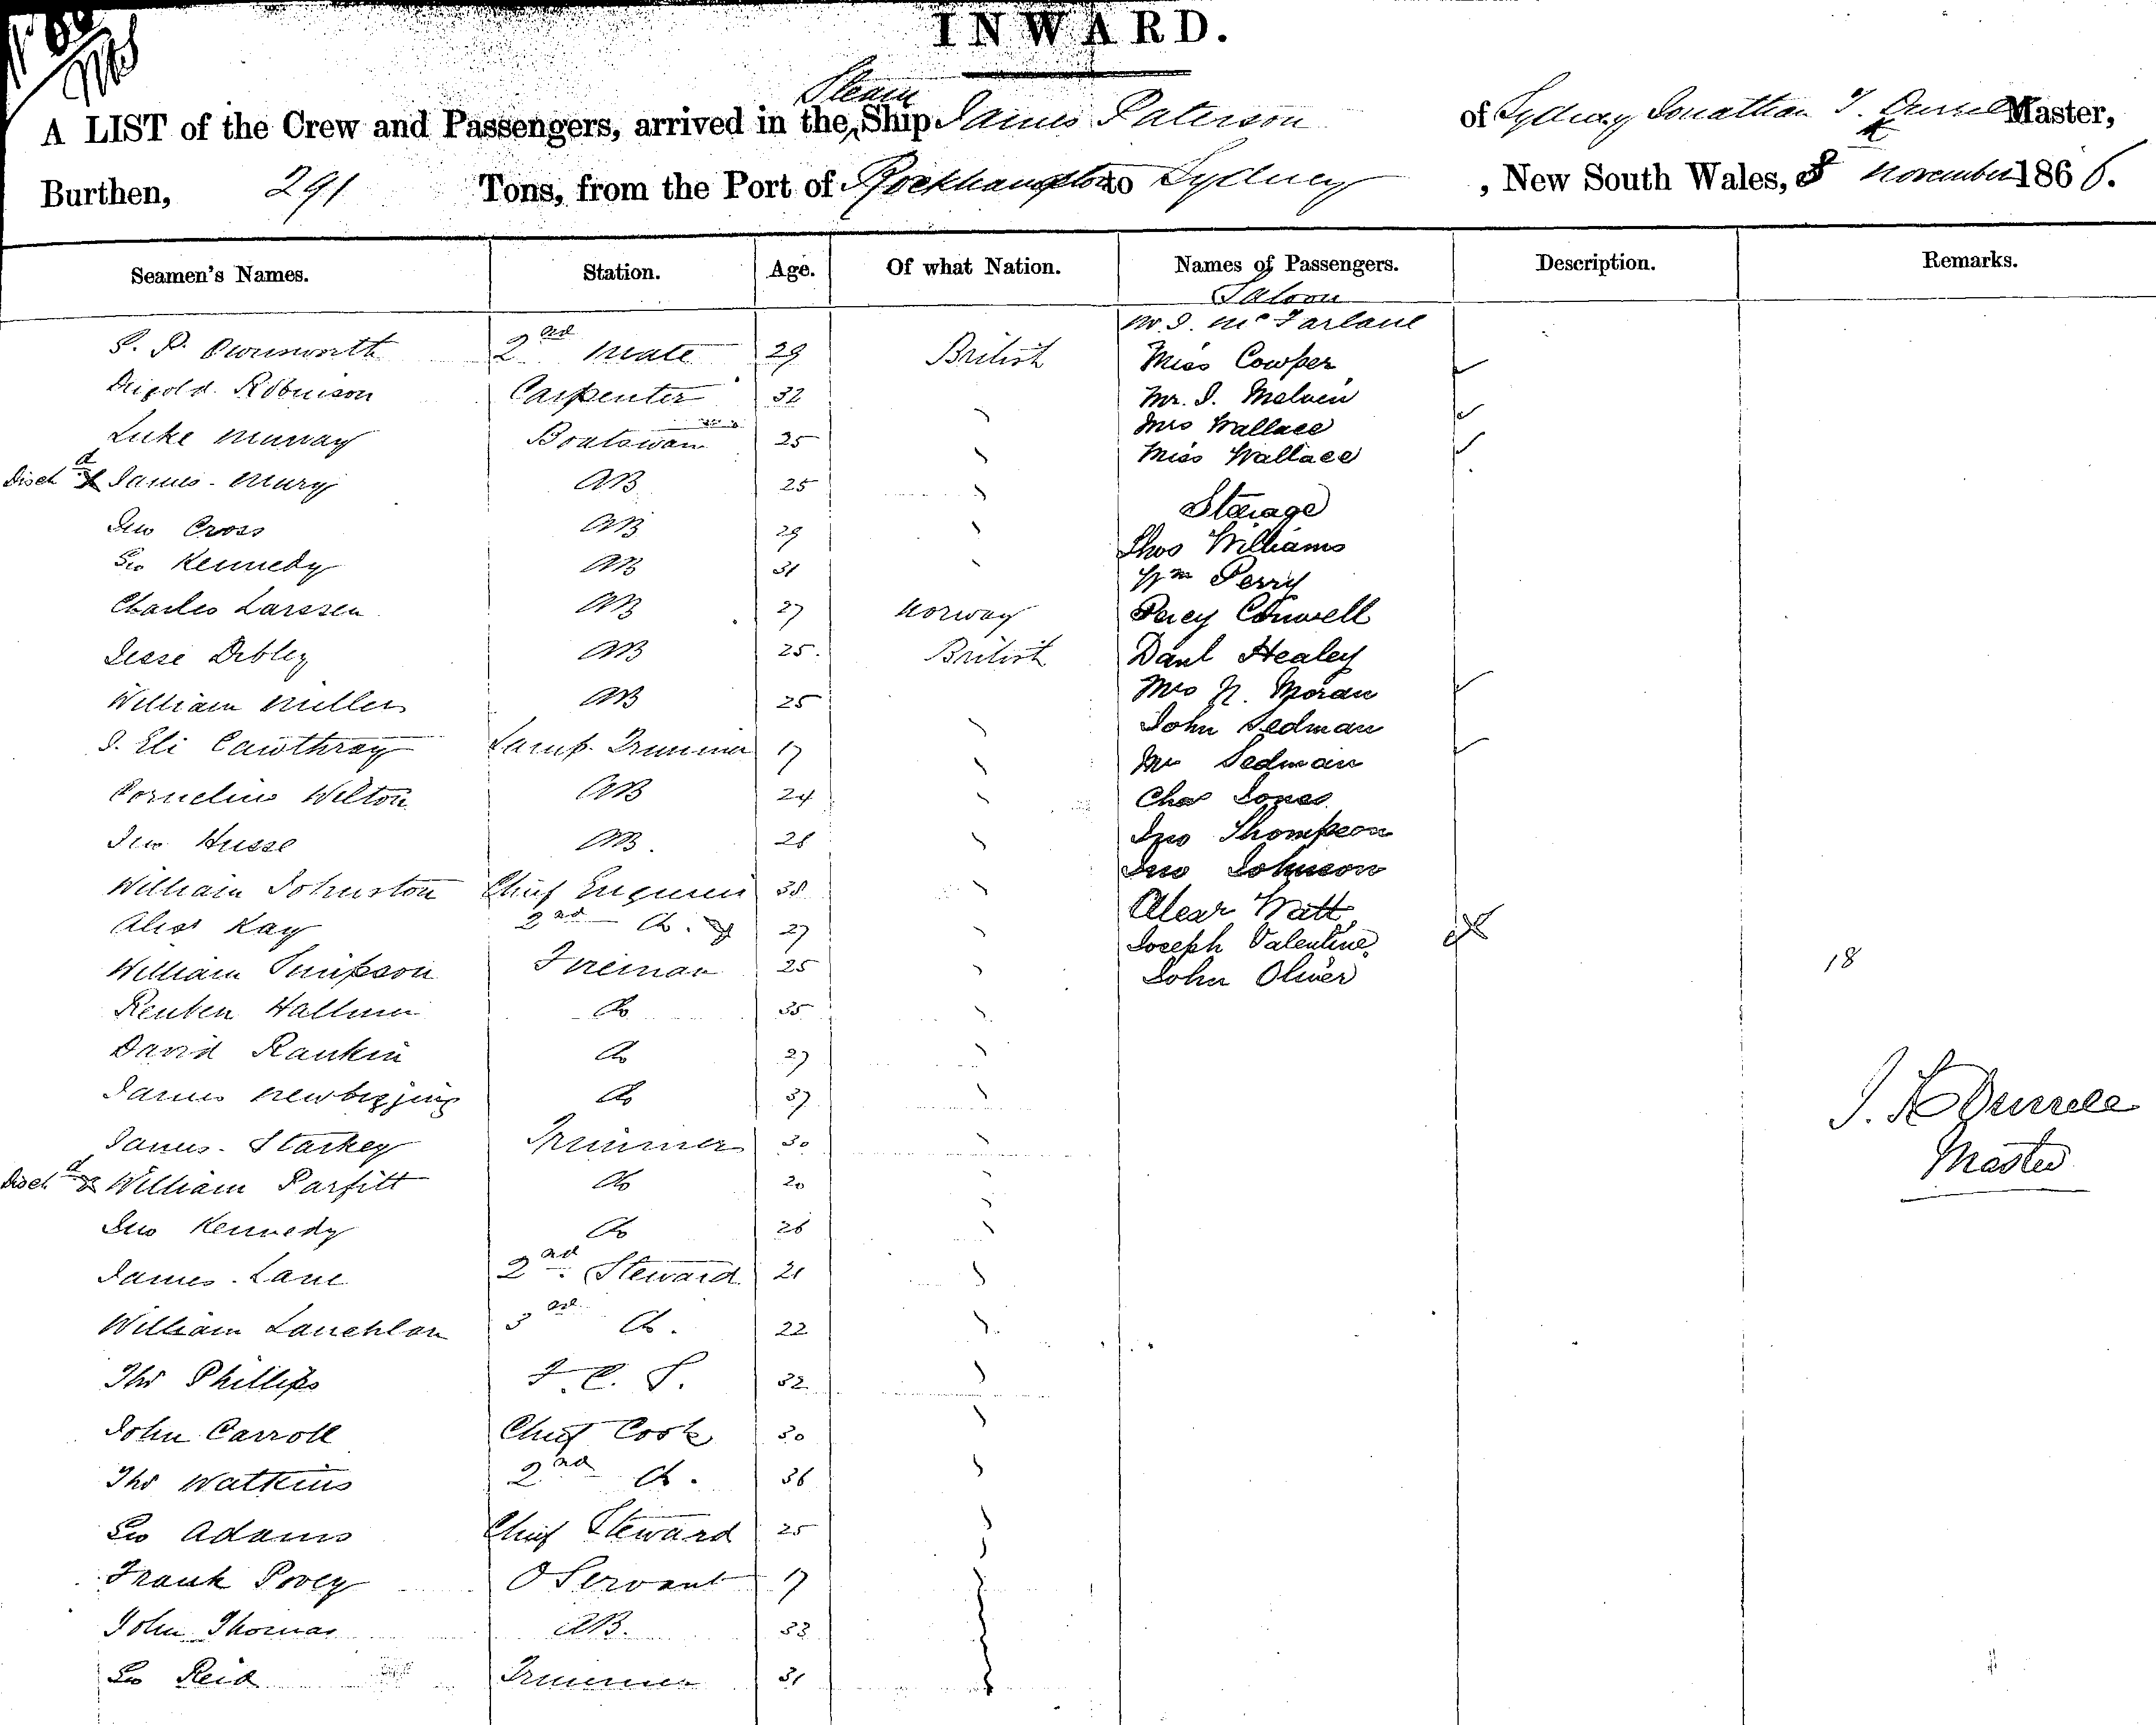 INWARD.
Steam
A LIST of the Crew and Passengers, arrived in the Ship James Paterson of Sydney Jonathan Master,
Burthen, 291 Tons, from the Port of Rockhampton to Sydney, New South Wales, 8 November 1866.
Seamen's Names. Station. Age. Of what Nation. Names of Passengers. Description. Remarks.
Saloon
McFarlane
2nd Mate 29 British Miss Cowper
Robinson Carpenter 32 Mr. J. Melvin
Mrs Wallace
Luke Murray Boatswain 25 Miss Wallace
Disch'd James Mury AB 25
Steerage
Jno Cross AB 29 Thos Williams
Geo Kennedy AB 31 Wm Perry
Charles Larssen AB 27 Norway Percy Conwell
Jesse Dibley AB 25 British Danl Healey
William Miller AB 25 Mrs N. Moran
John Sedman
J. Eli Cawthray Lamp Trimmer 17 Sedman
Cornelius Welton AB 24 Chas Jones
Jno Husse AB Jno Thompson
Jno Johnson
William Johnston Chief Engineer 38 Alexr Watt
Alexr Kay 2nd Do 27 Joseph Valentine
William Simpson Fireman 25 John Oliver 18
Reuben Hallum Do 35
David Rankin Do 27
James Newbigging Do 37
J. Durrell
James Starkey Trimmer 30
Master
Disch'd William Parfitt Do 20
Jno Kennedy Do 26
James Lane 2nd Steward 21
William Lauchlan 3rd Do. 22
Thos Phillips F. C. S. 32
John Carroll Chief Cook 30
Thos Watkins 2nd Do. 36
Geo Adams Chief Steward 25
Frank Povey O Servant 17
John Thomas AB. 33
Geo Reid Trimmer 31